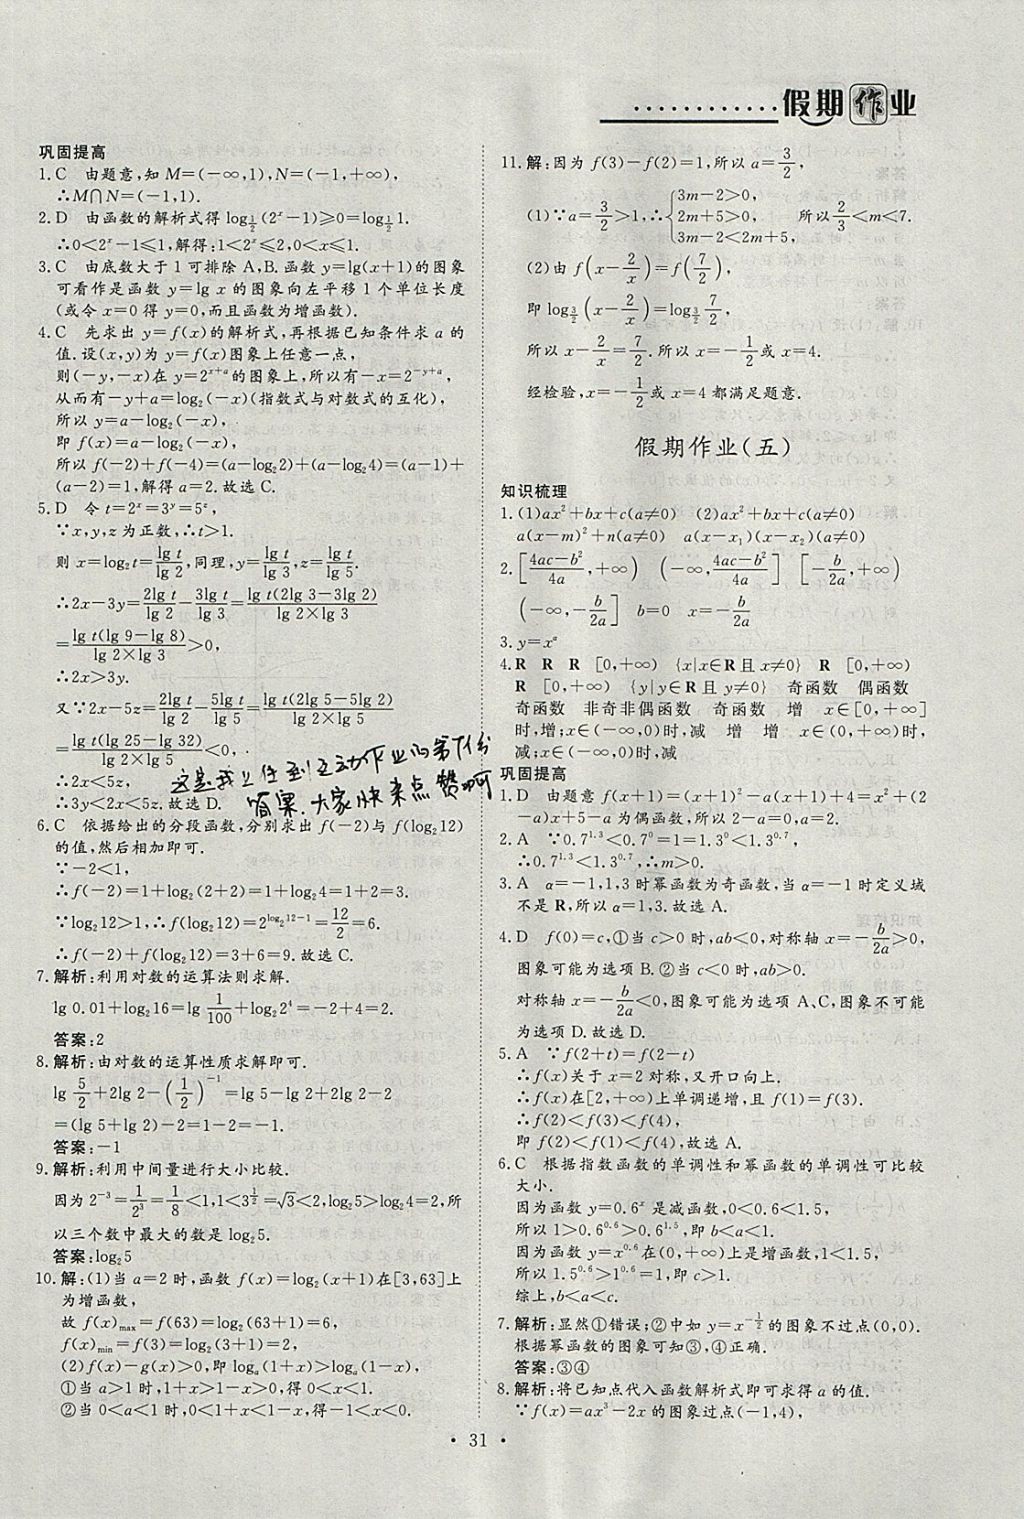 假期作业
巩固提高
1.C 由题意,知 M=(-∞,1),N=(-1,+∞),
∴M∩N=(-1,1).
2.D 由函数的解析式得 log_{1/2}(2^x-1)≥0=log_{1/2}1.
∴0<2^x-1≤1,解得:1<2^x≤2,0<x≤1.
3.C 由底数大于 1 可排除 A,B.函数 y=lg(x+1)的图象
可看作是函数 y=lg x 的图象向左平移 1 个单位长度
(或令 x=0 得 y=0,而且函数为增函数).
4.C 先求出 y=f(x)的解析式,再根据已知条件求 a 的
值.设(x,y)为 y=f(x)图象上任意一点,
则(-y,-x)在 y=2^{x+a}的图象上,所以有-x=2^{-y+a},
从而有-y+a=log₂(-x)(指数式与对数式的互化),
所以 y=a-log₂(-x),
即 f(x)=a-log₂(-x),
所以 f(-2)+f(-4)=(a-log₂2)+(a-log₂4)=(a-1)+
(a-2)=1,解得 a=2.故选 C.
5.D 令 t=2^x=3^y=5^z,
∵x,y,z 为正数,∴t>1.
则 x=log₂t=lg t/lg 2,同理,y=lg t/lg 3,z=lg t/lg 5.
∴2x-3y=2lg t/lg 2-3lg t/lg 3=lg t(2lg 3-3lg 2)/(lg 2×lg 3)
=lg t(lg 9-lg 8)/(lg 2×lg 3)>0,
∴2x>3y.
又∵2x-5z=2lg t/lg 2-5lg t/lg 5=lg t(2lg 5-5lg 2)/(lg 2×lg 5)
=lg t(lg 25-lg 32)/(lg 2×lg 5)<0,
∴2x<5z,
∴3y<2x<5z.故选 D.
这是我上传到互动作业的第71份
答案.大家快来点赞啊
6.C 依据给出的分段函数,分别求出 f(-2)与 f(log₂12)
的值,然后相加即可.
∵-2<1,
∴f(-2)=1+log₂(2+2)=1+log₂4=1+2=3.
∵log₂12>1,∴f(log₂12)=2^{log₂12-1}=12/2=6.
∴f(-2)+f(log₂12)=3+6=9.故选 C.
7.解析:利用对数的运算法则求解.
lg 0.01+log₂16=lg 1/100+log₂2⁴=-2+4=2.
答案:2
8.解析:由对数的运算性质求解即可.
lg 5/2+2lg 2-(1/2)^{-1}=lg 5-lg 2+2lg 2-2
=(lg 5+lg 2)-2=1-2=-1.
答案:-1
9.解析:利用中间量进行大小比较.
因为 2^{-3}=1/2³=1/8<1,1<3^{1/2}=√3<2,log₂5>log₂4=2,所
以三个数中最大的数是 log₂5.
答案:log₂5
10.解:(1)当 a=2 时,函数 f(x)=log₂(x+1)在[3,63]上
为增函数,
故 f(x)max=f(63)=log₂(63+1)=6,
f(x)min=f(3)=log₂(3+1)=2.
(2)f(x)-g(x)>0,即 logₐ(1+x)>logₐ(1-x),
①当 a>1 时,1+x>1-x>0,得 0<x<1.
②当 0<a<1 时,0<1+x<1-x,得-1<x<0.
11.解:因为 f(3)-f(2)=1,所以 a=3/2,
(1)∵a=3/2>1,∴{3m-2>0, 2m+5>0, 3m-2<2m+5, 所以 2/3<m<7.
(2)由 f(x-2/x)=f(7/2),
即 log_{3/2}(x-2/x)=log_{3/2}7/2,
所以 x-2/x=7/2.所以 x=-1/2或 x=4.
经检验,x=-1/2或 x=4 都满足题意.
假期作业(五)
知识梳理
1.(1)ax²+bx+c(a≠0) (2)ax²+bx+c(a≠0)
a(x-m)²+n(a≠0) a(x-x₁)(x-x₂)(a≠0)
2.[(4ac-b²)/4a,+∞) (-∞,(4ac-b²)/4a] [-b/2a,+∞)
(-∞,-b/2a] b=0 x=-b/2a
3.y=x^α
4.R R R [0,+∞) {x|x∈R且 x≠0} R [0,+∞)
R [0,+∞) {y|y∈R且 y≠0} 奇函数 偶函数
奇函数 非奇非偶函数 奇函数 增 x∈[0,+∞)
时,增;x∈(-∞,0)时,减 增 增 x∈(0,+∞)时,
减;x∈(-∞,0)时,减
巩固提高
1.D 由题意 f(x+1)=(x+1)²-a(x+1)+4=x²+(2
-a)x+5-a 为偶函数,所以 2-a=0,a=2.
2.A ∵0.7^{1.3}<0.7⁰=1=1.3⁰<1.3^{0.7},
∴0.7^{1.3}<1.3^{0.7},∴m>0.
3.A α=-1,1,3 时幂函数为奇函数,当 α=-1 时定义域
不是 R,所以 α=1,3.故选 A.
4.D f(0)=c,①当 c>0 时,ab<0,对称轴 x=-b/2a>0,
图象可能为选项 B.②当 c<0 时,ab>0.
对称轴 x=-b/2a<0,图象可能为选项 A,C,图象不可能
为选项 D.故选 D.
5.A ∵f(2+t)=f(2-t)
∴f(x)关于 x=2 对称,又开口向上.
∴f(x)在[2,+∞)上单调递增,且 f(1)=f(3).
∴f(2)<f(3)<f(4),
即 f(2)<f(1)<f(4),故选 A.
6.C 根据指数函数的单调性和幂函数的单调性可比较
大小.
因为函数 y=0.6^x 是减函数,0<0.6<1.5,
所以 1>0.6^{0.6}>0.6^{1.5},即 b<a<1.
因为函数 y=x^{0.6}在(0,+∞)上是增函数,1<1.5,
所以 1.5^{0.6}>1^{0.6}=1,即 c>1.
综上,b<a<c.
7.解析:显然①错误;②中如 y=x^{-1/2}的图象不过点(0,0).
根据幂函数的图象可知③,④正确.
答案:③④
8.解析:将已知点代入函数解析式即可求得 a 的值.
∵f(x)=ax³-2x 的图象过点(-1,4),
• 31 •